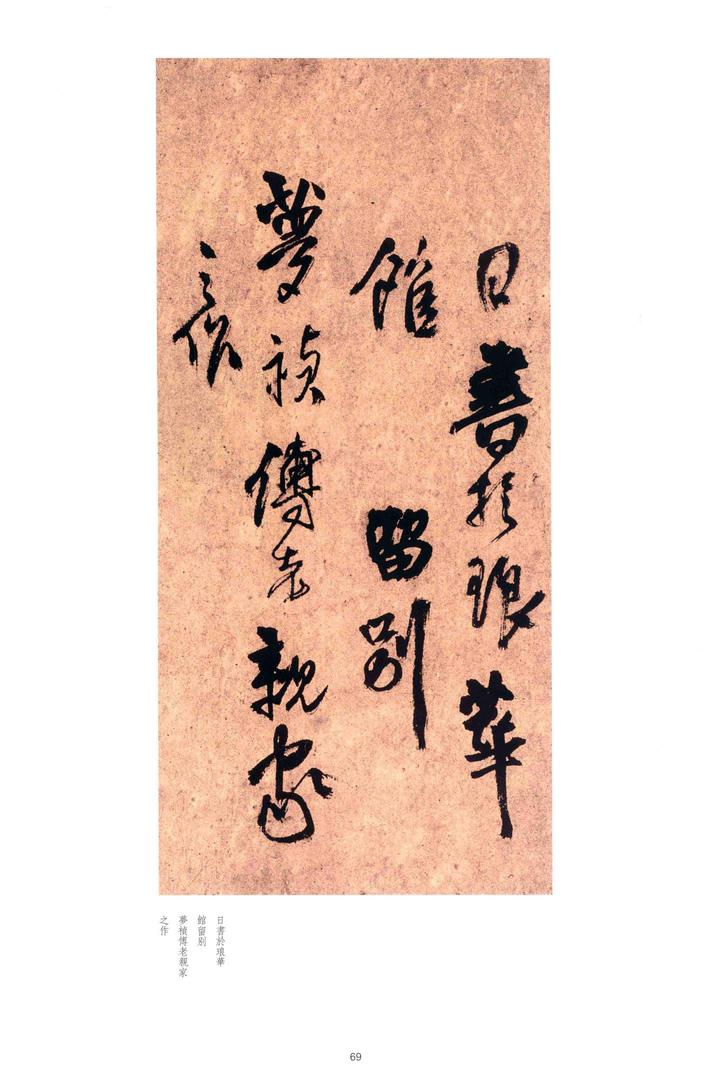 日書於琅華
館留別
夢禎傅老親家
之作
日書於琅華
館留別
夢禎傅老親家
之作
69